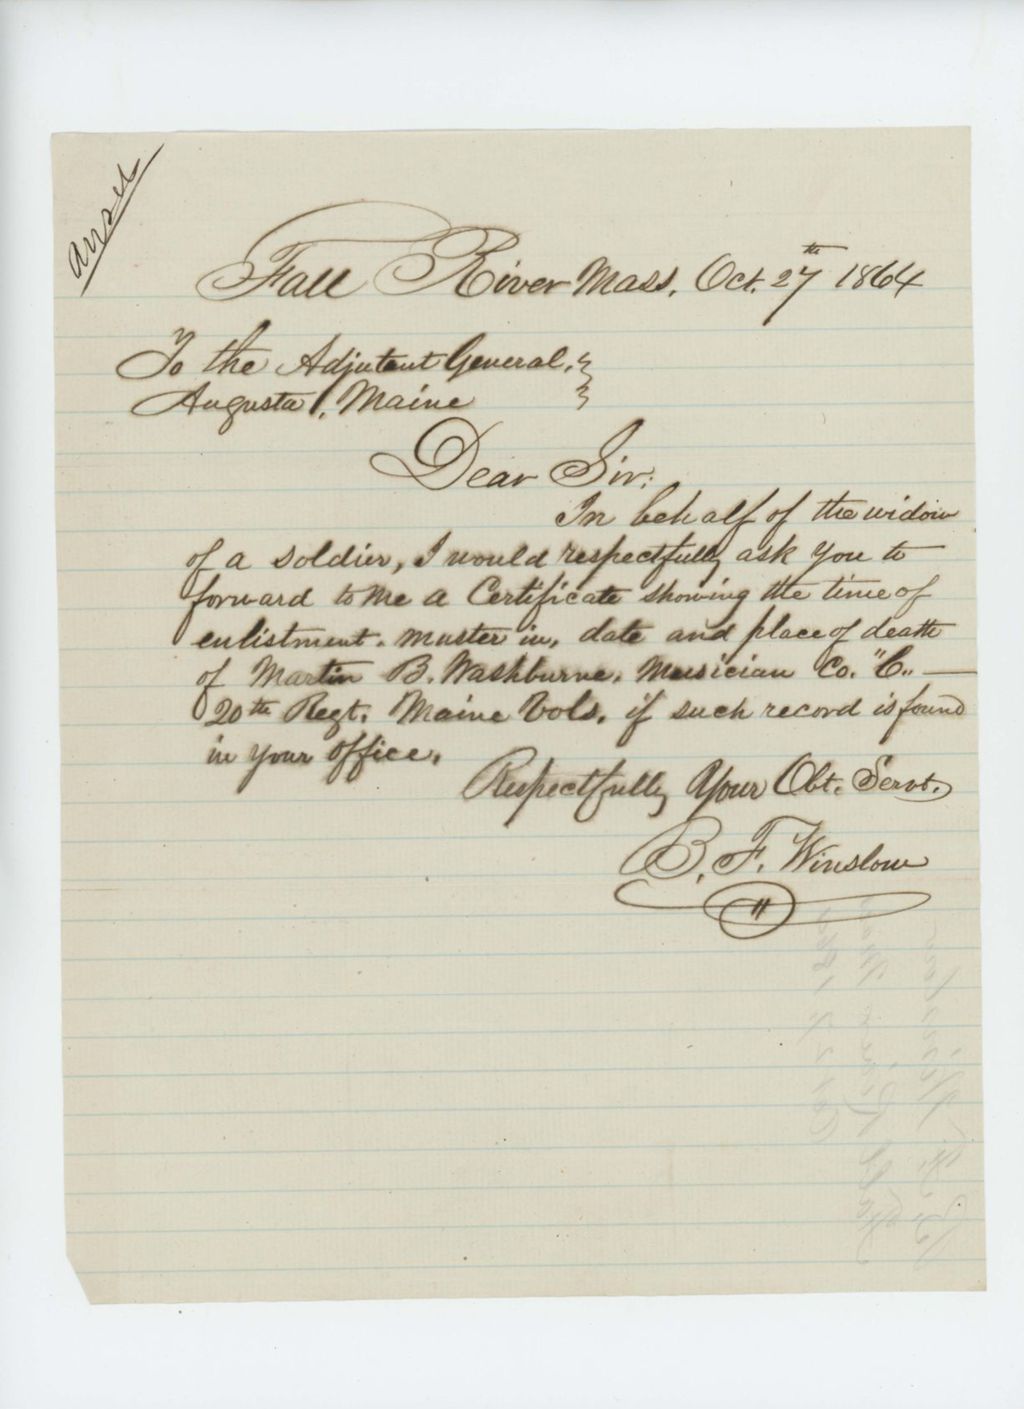 ansd
Fall River Mass. Oct. 27th 1864
To the Adjutent General,
Augusta, Maine
Dear Sir:
In behalf of the widow
of a soldier, I would respectfully ask you to
forward to me a Certificate showing the time of
enlistment. muster in, date and place of death
of Martin B. Washburne, Musician Co. "C" —
20th Regt. Maine Vols. if such record is found
in your office.
Respectfully Your Obt. Servt.
B. F. Winslow